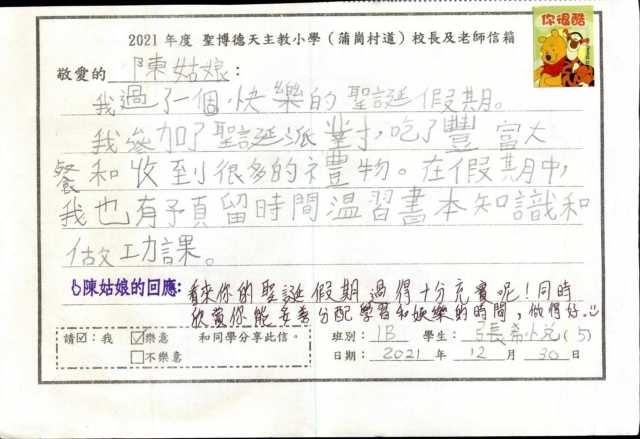 你很酷
2021 年度 聖博德天主教小學（蒲崗村道）校長及老師信箱
敬愛的 陳姑娘：
我過了一個快樂的聖誕假期。
我參加了聖誕派對，吃了豐富大
餐和收到很多的禮物。在假期中，
我也有預留時間溫習書本知識和
做功課。
陳姑娘的回應：看來你的聖誕假期過得十分充實呢！同時
欣賞你能妥善分配學習和娛樂的時間，做得好。
請☑：我 ☑樂意 和同學分享此信。 班別：1B 學生：張希悅（5）
□不樂意 日期：2021 年 12 月 30 日